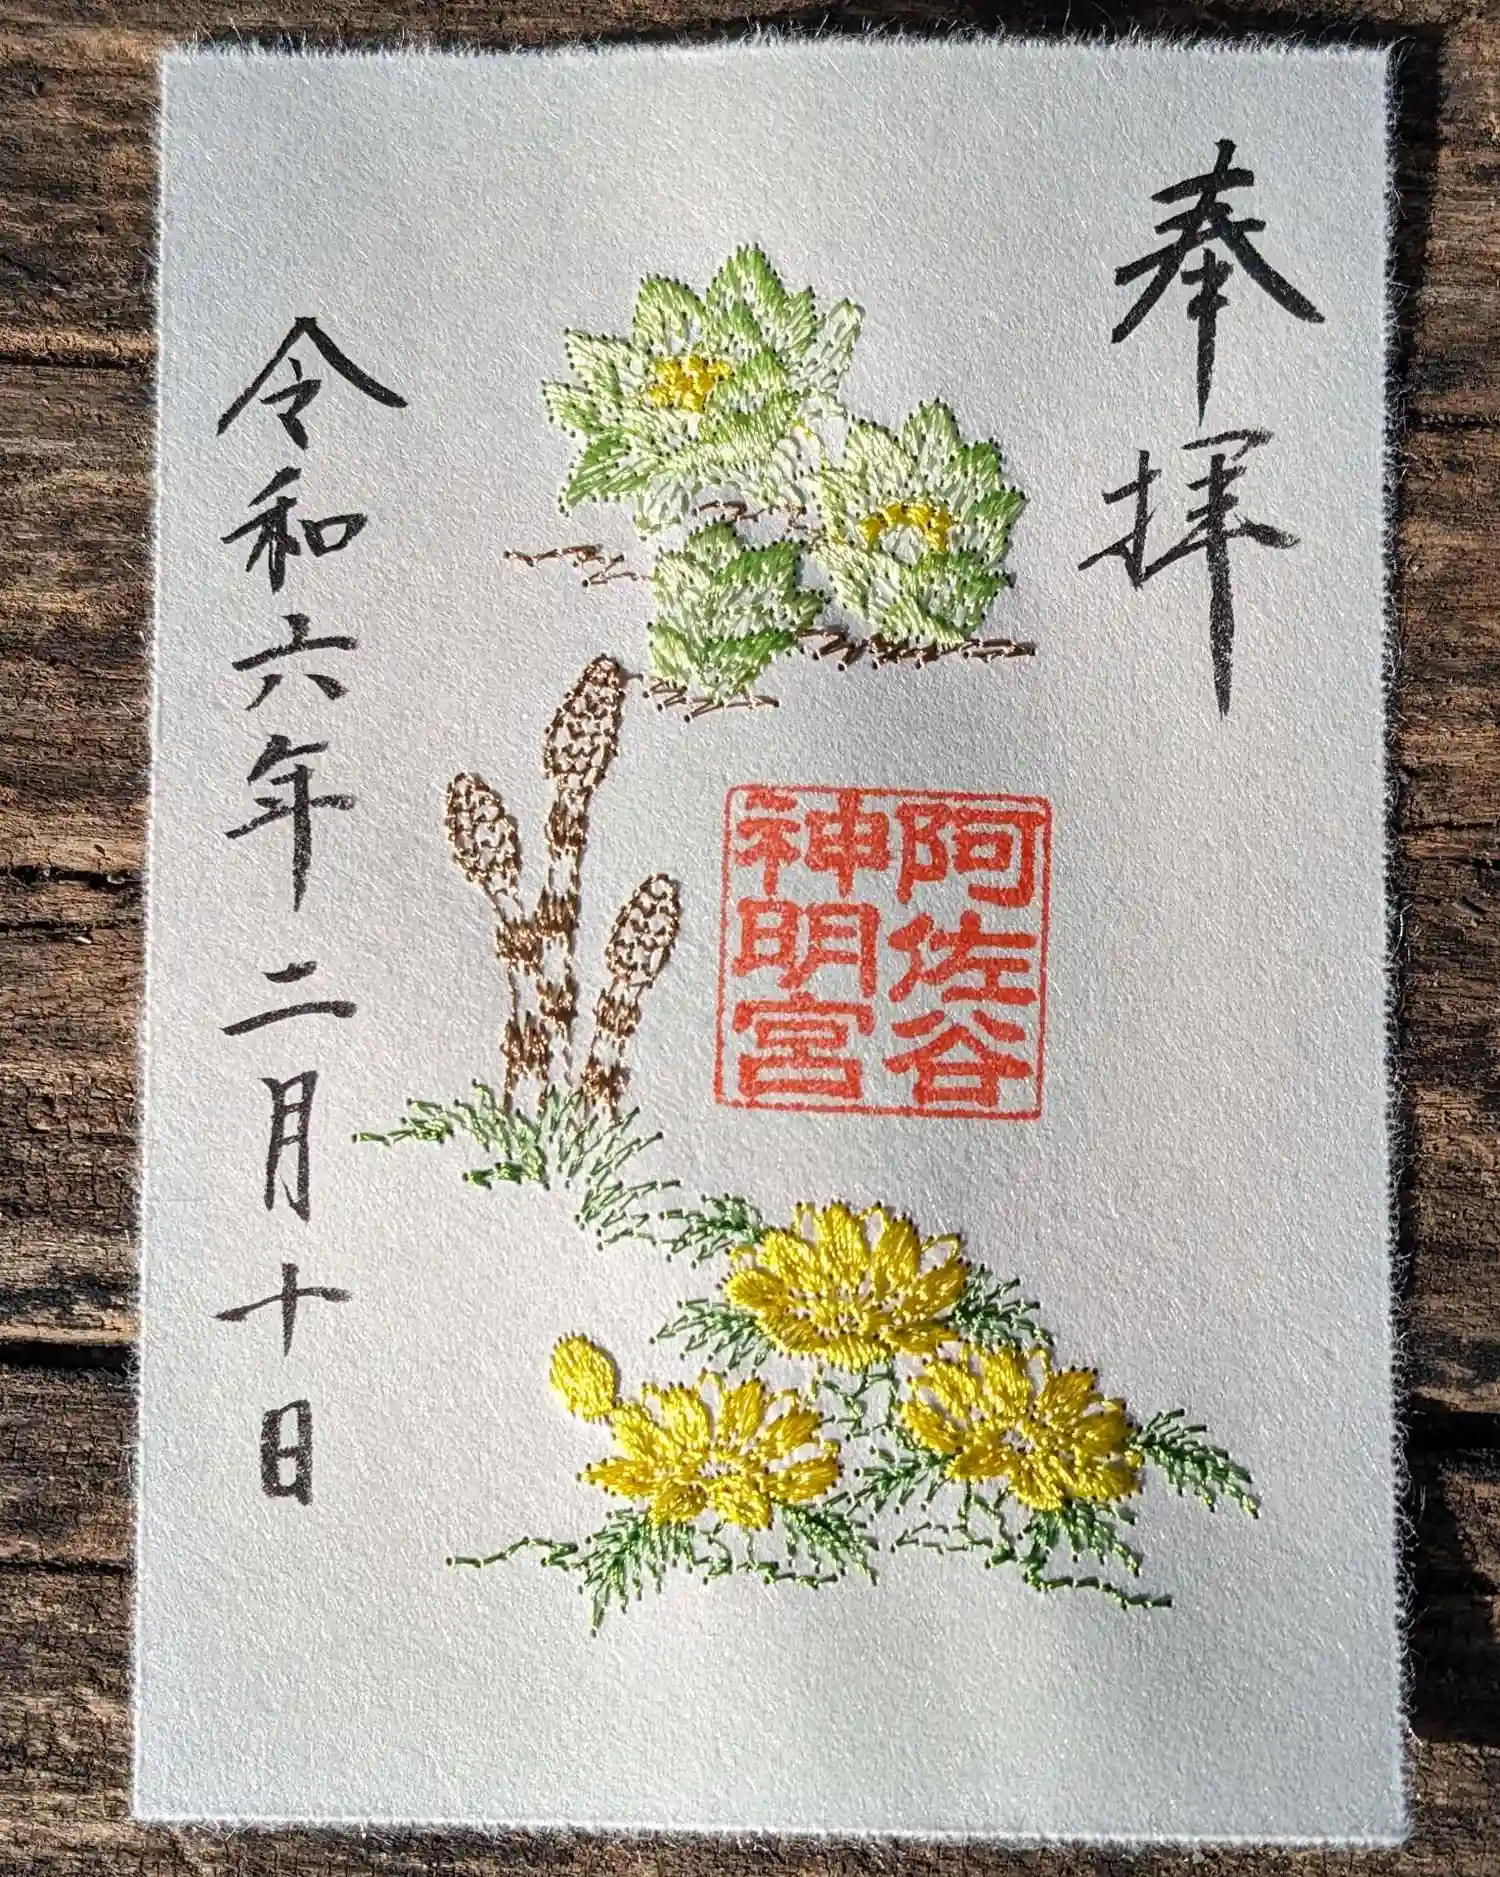 奉拝
阿佐谷
神明宮
令和六年二月十日